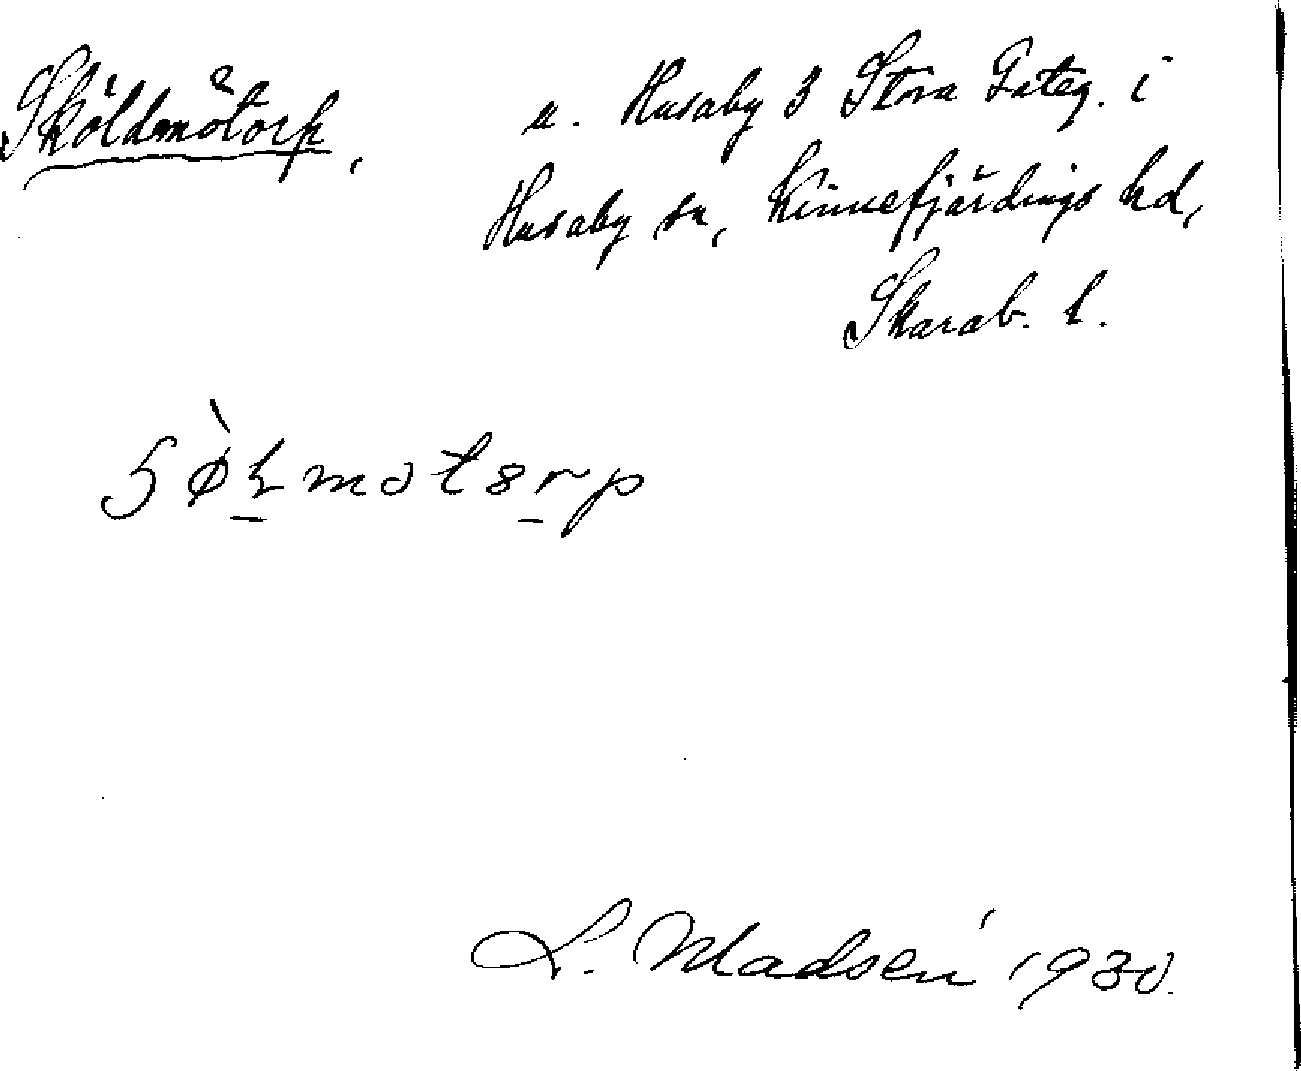 Sköldmötorp, u. Husaby 3 Stora Fateg. i
Husaby sn, Kinnefjärdings hd,
Skarab. l.
L. Madsén 1930.